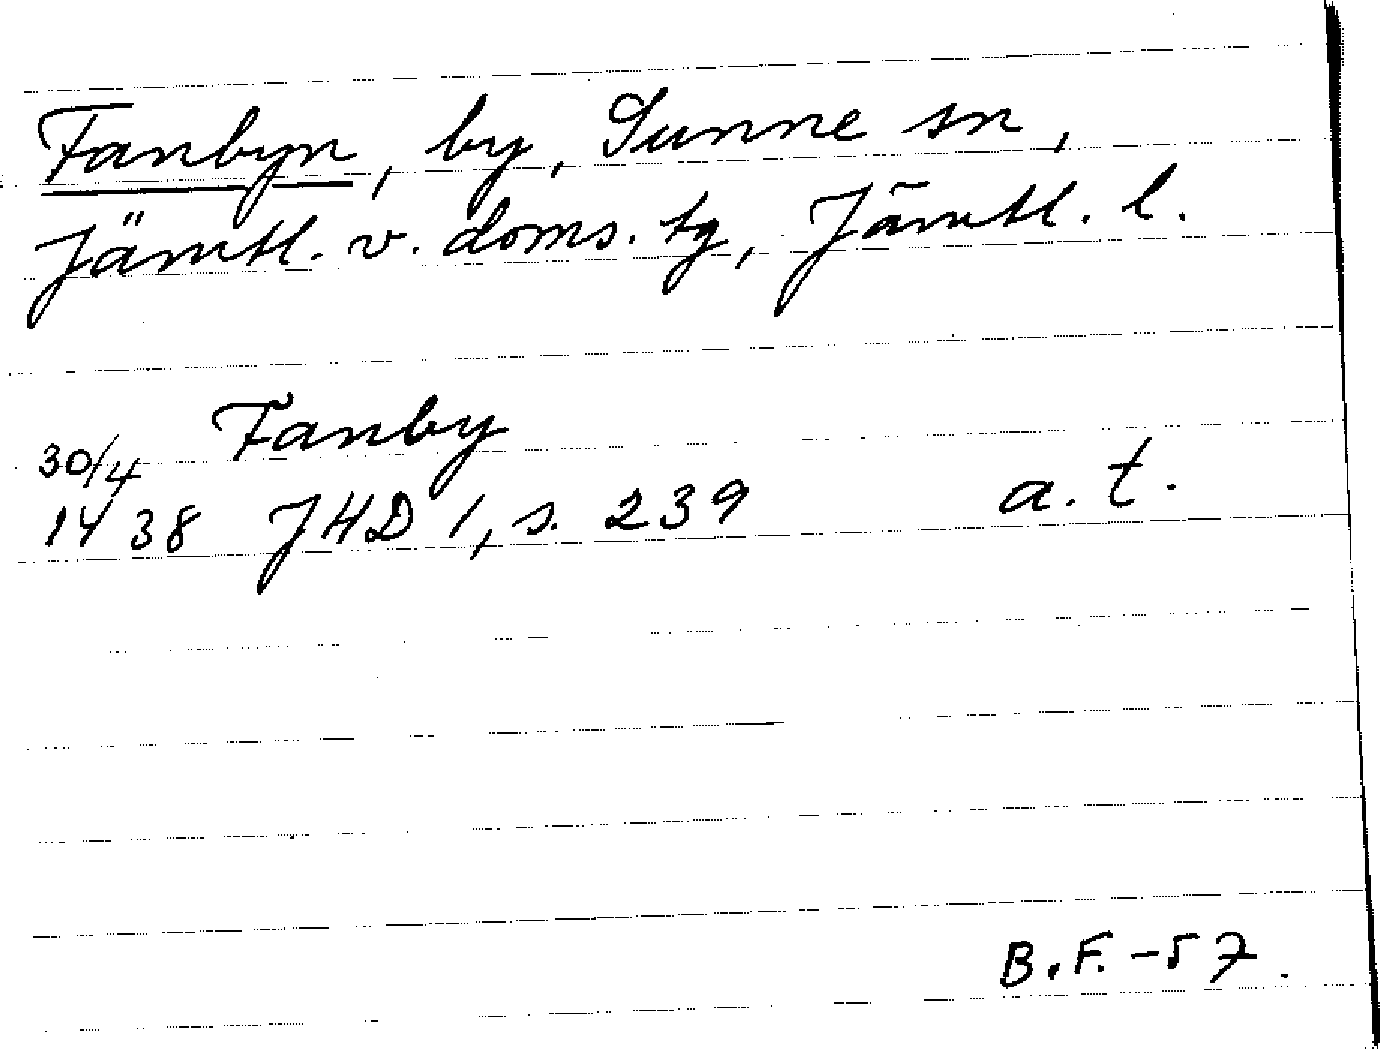 Fanbyn, by, Sunne sn,
Jämtl. v. doms. tg, Jämtl. l.
Fanby
30/4
1438 JHD 1, s. 239 a. t.
B.F. -57.